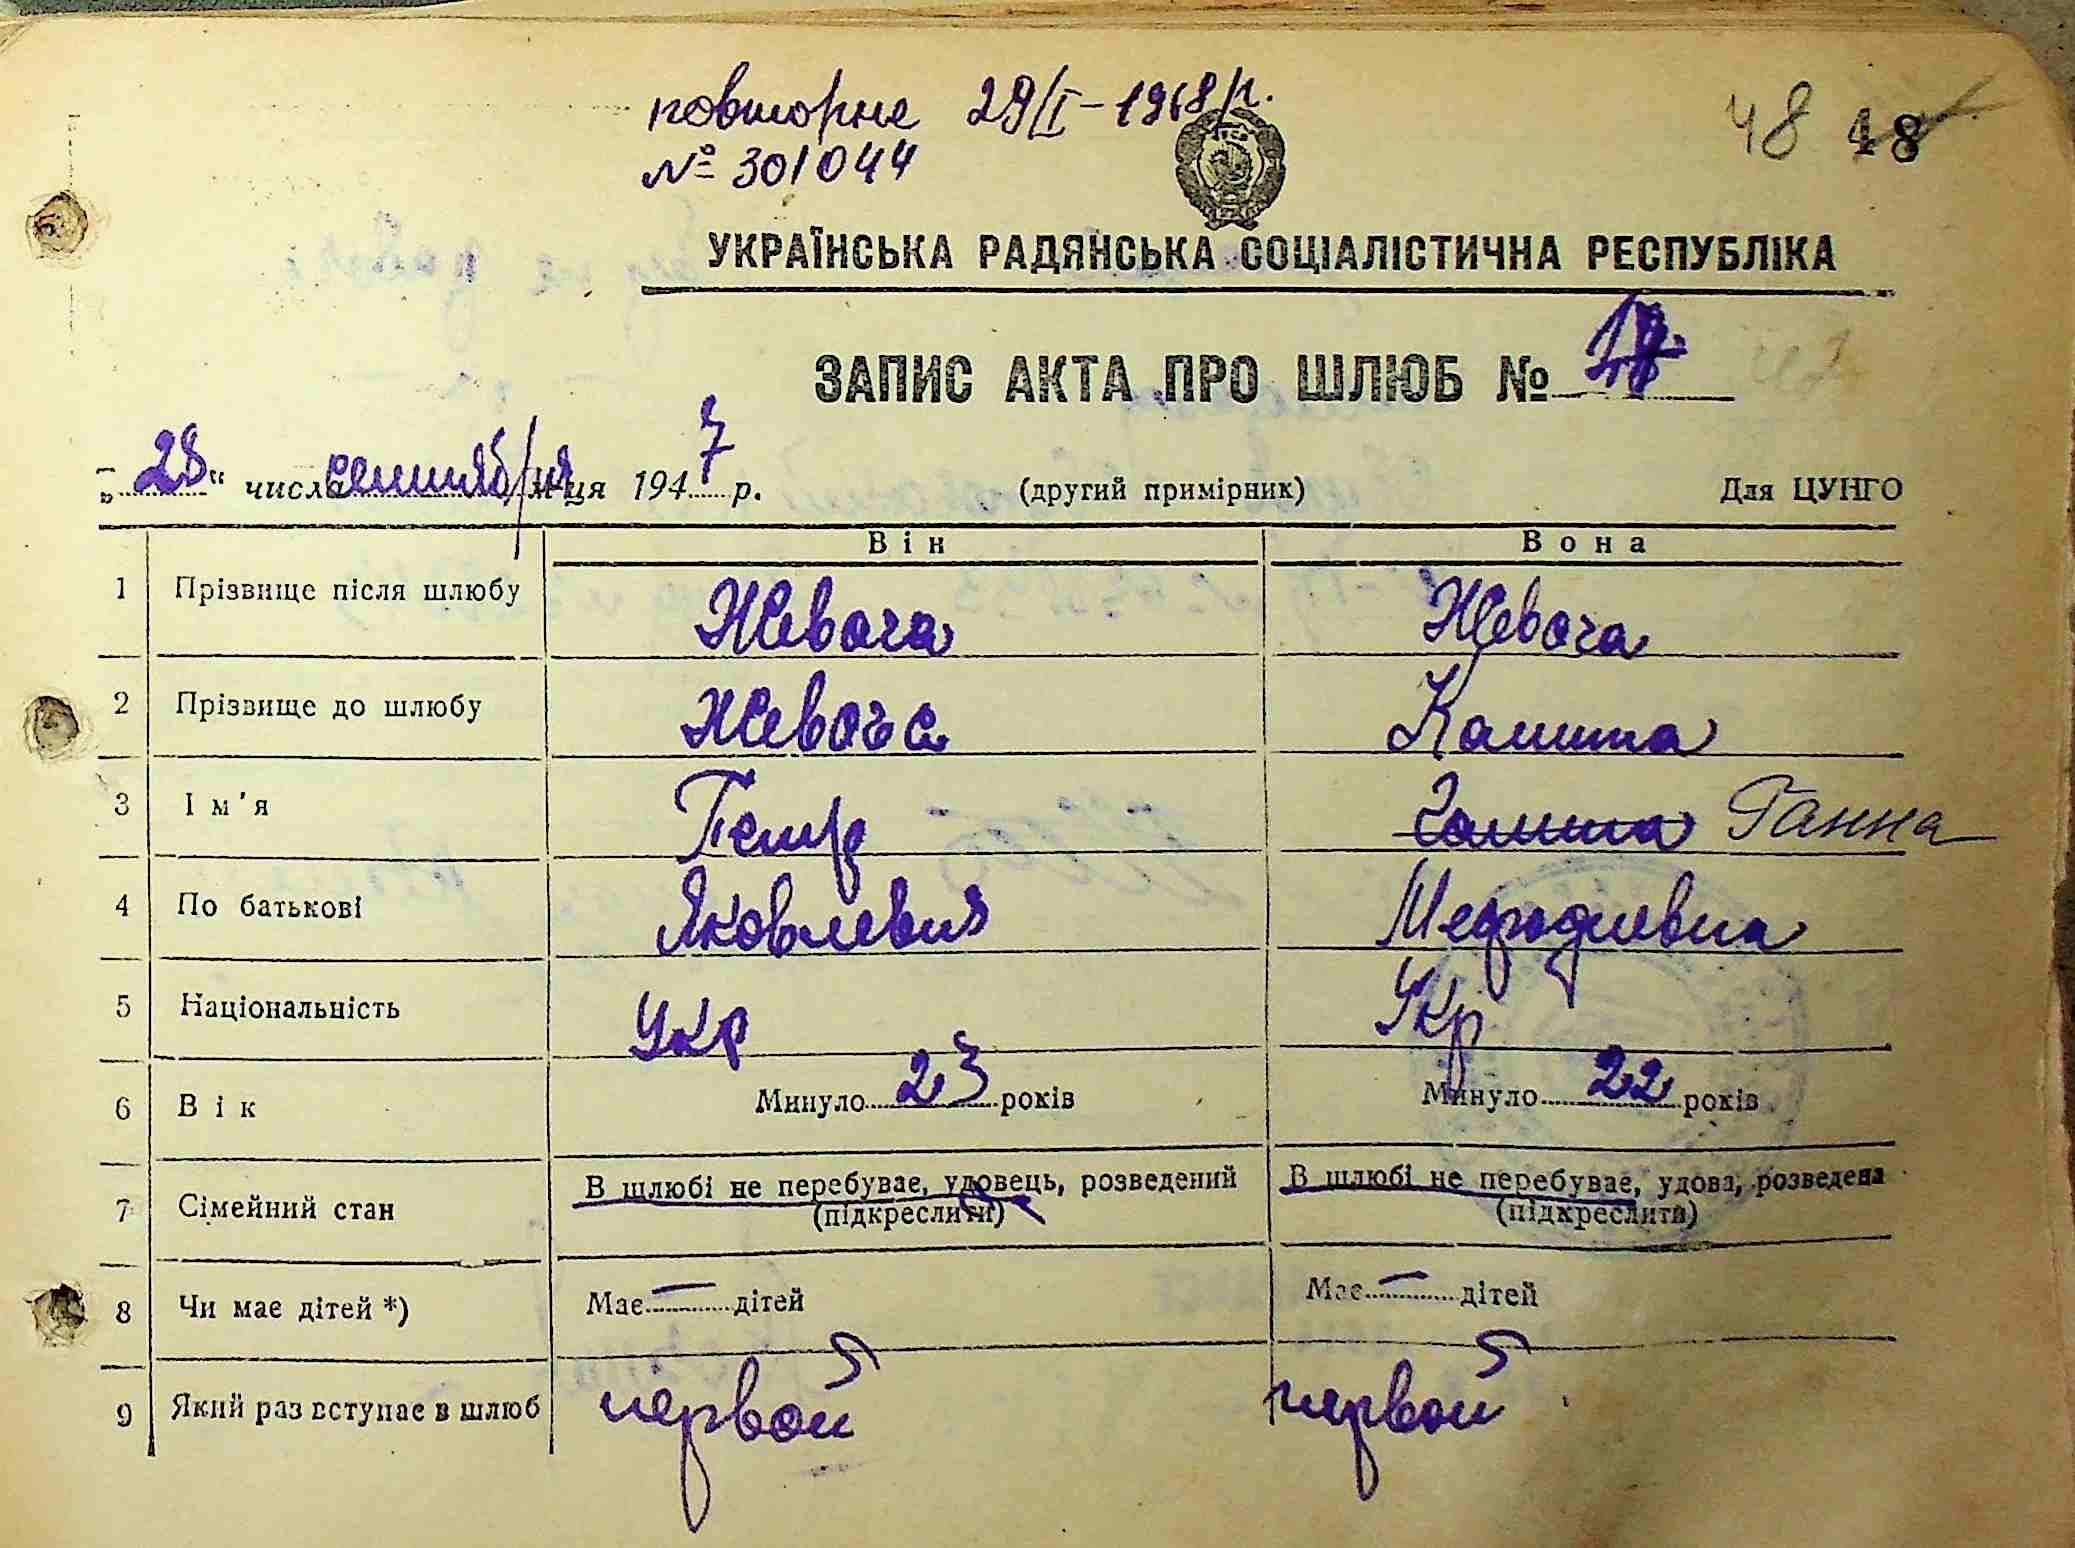 повторне 29/I-1968 р.
№ 301044
48 48
УКРАЇНСЬКА РАДЯНСЬКА СОЦІАЛІСТИЧНА РЕСПУБЛІКА
ЗАПИС АКТА ПРО ШЛЮБ №
„28“ числа сентября м-ця 1947 р. (другий примірник) Для ЦУНГО
Він Вона
1 Прізвище після шлюбу Жевага Жевага
2 Прізвище до шлюбу Жевага Калита
3 Ім'я Петр Галина Ганна
4 По батькові Яковлевич Мефодиевна
5 Національність Укр Укр
6 Вік Минуло 23 років Минуло 22 років
7 Сімейний стан В шлюбі не перебуває, удовець, розведений В шлюбі не перебуває, удова, розведена
(підкреслити) (підкреслити)
8 Чи має дітей *) Має — дітей Має — дітей
9 Який раз вступає в шлюб первой первой